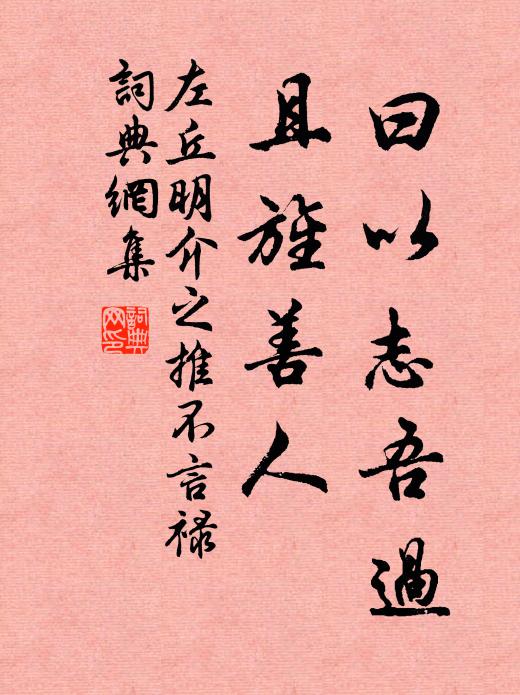 曰以志吾過
且旌善人
左丘明介之推不言祿
詞典網集
詞典网印